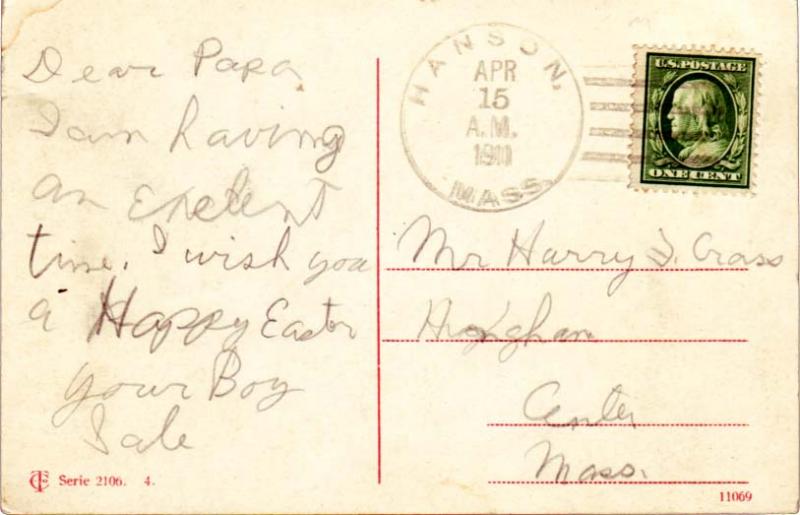 Dear Papa
I am having
an Exelent
time. I wish you
a Happy Easter
your Boy
HANSON,
APR
15
A.M.
MASS.
U.S. POSTAGE
ONE CENT
Mr Harry S. Crass
Hingham
Center
Mass.
Serie 2106. 4.
11069